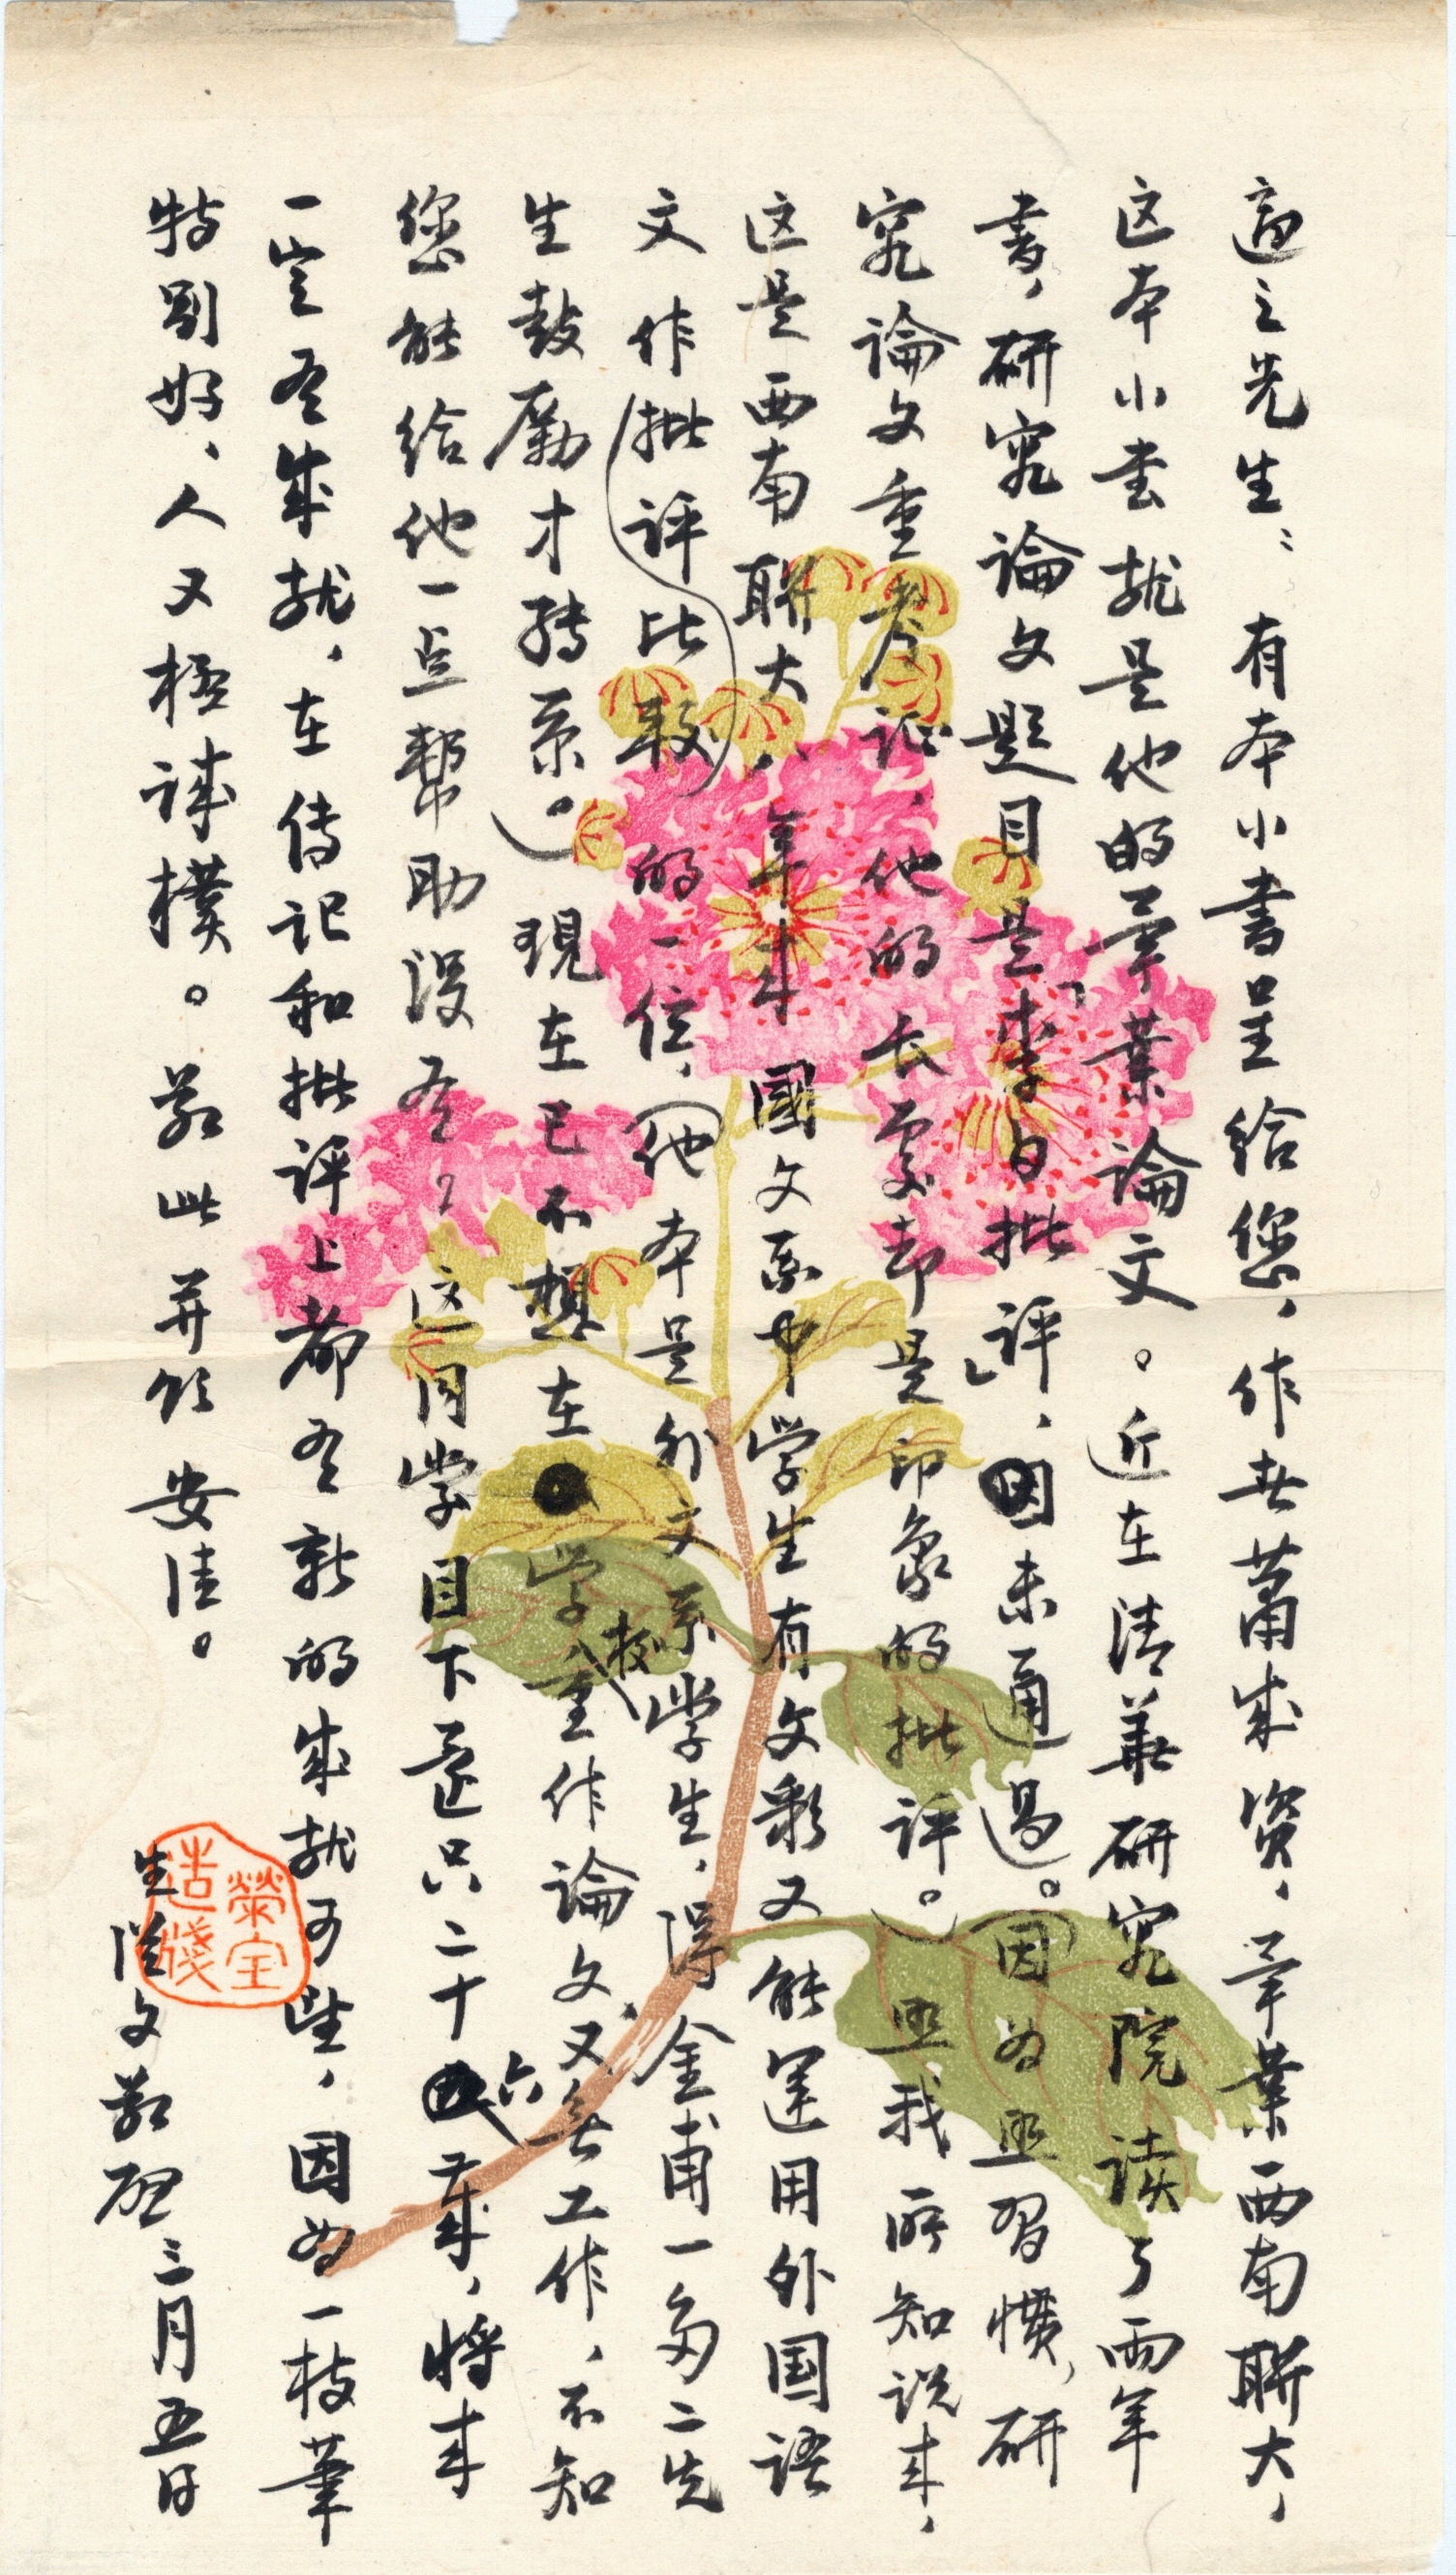 适之先生：有本小書呈给您，作者萧成资，毕業西南联大，
这本小书就是他的毕業論文。近在清華研究院读了两年
書，研究論文題目是「李白批評」，因未通过。（因为照習惯，研
究論文重考证，他的长處却是印象的批評。）照我所知说来，
这是西南联大八年来國文系中学生有文彩又能运用外国語
文作批評比较的一位，（他本是外文系学生，得金甫一多二先
生鼓励才转系。）現在已不想在学校重作論文，又無工作，不知
您能给他一点幫助没有？这同学目下还只二十六歲，将来
一定有成就，在传记和批評上都有新的成就可望，因为一枝筆
特别好、人又極诚樸。敬此并颂安佳。
生從文敬启 三月五日
榮宝
造牋